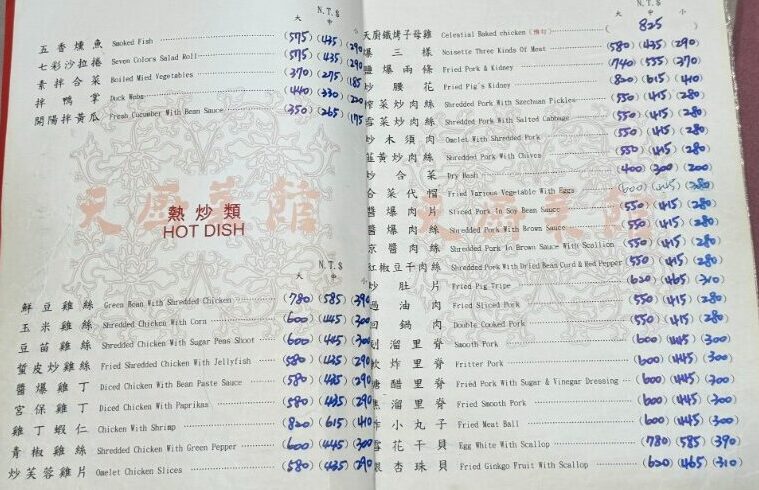 N.T.$
大 中 小
五香燻魚 Smoked Fish (575)(435)(290
七彩沙拉捲 Seven Colors Salad Roll (575)(435)(290
素拌合菜 Boiled Mied Vegetables (370)(275)(185
拌鴨掌 Duck Webs (440)(330)(220
開陽拌黃瓜 Fresh Cucumber With Bean Sauce (350)(265)(175
天廚菜館
熱炒類
HOT DISH
N.T.$
大 中 小
鮮豆雞絲 Green Bean With Shredded Chicken (780)(585)(390
玉米雞絲 Shredded Chicken With Corn (600)(445)(300
豆苗雞絲 Shredded Chicken With Sugar Peas Shoot (600)(445)(300
蜇皮炒雞絲 Fried Shredded Chicken With Jellyfish (580)(435)(290
醬爆雞丁 Diced Chicken With Bean Paste Sauce (580)(435)(290
宮保雞丁 Diced Chicken With Paprikas (580)(435)(290
雞丁蝦仁 Chicken With Shrimp (820)(615)(410
青椒雞絲 Shredded Chicken With Green Pepper (600)(445)(300
炒芙蓉雞片 Omelet Chicken Slices (580)(435)(290
N.T.$
大 中 小
天廚鐵烤子母雞 Celestial Baked chicken (預訂) ( 825 )
爆三樣 Noisette Three Kinds Of Meat (580)(435)(290)
鹽爆兩條 Fried Pork & Kidney (740)(555)(370)
炒腰花 Fried Pig's Kidney (820)(615)(410)
榨菜炒肉絲 Shredded Pork With Szechuan Pickles (550)(415)(280)
雪菜炒肉絲 Shredded Pork With Salted Cabbage (550)(415)(280)
炒木須肉 Omelet With Shredded Pork (550)(415)(280)
韮黃炒肉絲 Shredded Pork With Chives (550)(415)(280)
炒合菜 Dry Hash (400)(300)(200)
合菜代帽 Fried Various Vegetable With Eggs (600)(445)(280)
醬爆肉片 Sliced Pork In Soy Bean Sauce (550)(415)(280)
醬爆肉絲 Shredded Pork With Brown Sauce (550)(415)(280)
京醬肉絲 Shredded Pork In Brown Sauce With Scallion (550)(415)(280)
紅椒豆干肉絲 Shredded Pork With Dried Bean Curd & Red Pepper (550)(415)(280)
炒肚片 Fried Pig Tripe (620)(465)(310)
過油肉 Fried Sliced Pork (550)(415)(280)
回鍋肉 Double Cooked Pork (550)(415)(280)
溜里脊 Smooth Pork (600)(445)(300)
軟炸里脊 Fritter Pork (600)(445)(300)
糖醋里脊 Fried Pork With Sugar & Vinegar Dressing (600)(445)(300)
焦溜里脊 Fried Smooth Pork (600)(445)(300)
炸小丸子 Fried Meat Ball (600)(445)(300)
雪花干貝 Egg White With Scallop (780)(585)(390)
銀杏珠貝 Fried Ginkgo Fruit With Scallop (620)(465)(310)
天廚菜館